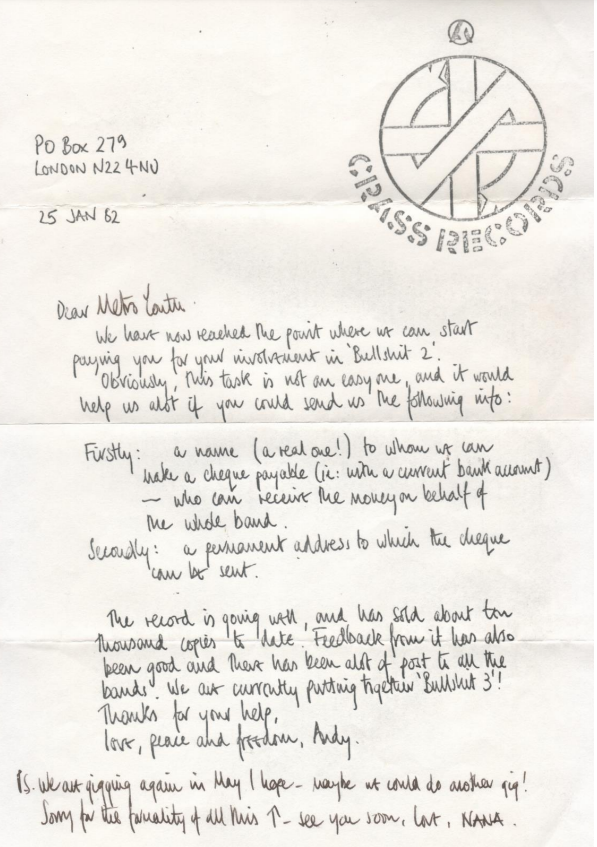 CRASS RECORDS
PO Box 279
LONDON N22 4NU
25 JAN 82
Dear Metro Youth.
We have now reached the point where we can start
paying you for your involvement in 'Bullshit 2'.
Obviously, this task is not an easy one, and it would
help us alot if you could send us the following info:
Firstly: a name (a real one!) to whom we can
make a cheque payable (ie: with a current bank account)
— who can receive the money on behalf of
the whole band.
Secondly: a permanent address to which the cheque
can be sent.
The record is going well, and has sold about ten
thousand copies to date. Feedback from it has also
been good and there has been alot of post to all the
bands. We are currently putting together 'Bullshit 3'!
Thanks for your help,
love, peace and freedom, Andy.
PS. We are gigging again in May I hope - maybe we could do another gig!
Sorry for the formality of all this ↑ - see you soon, love, NANA.